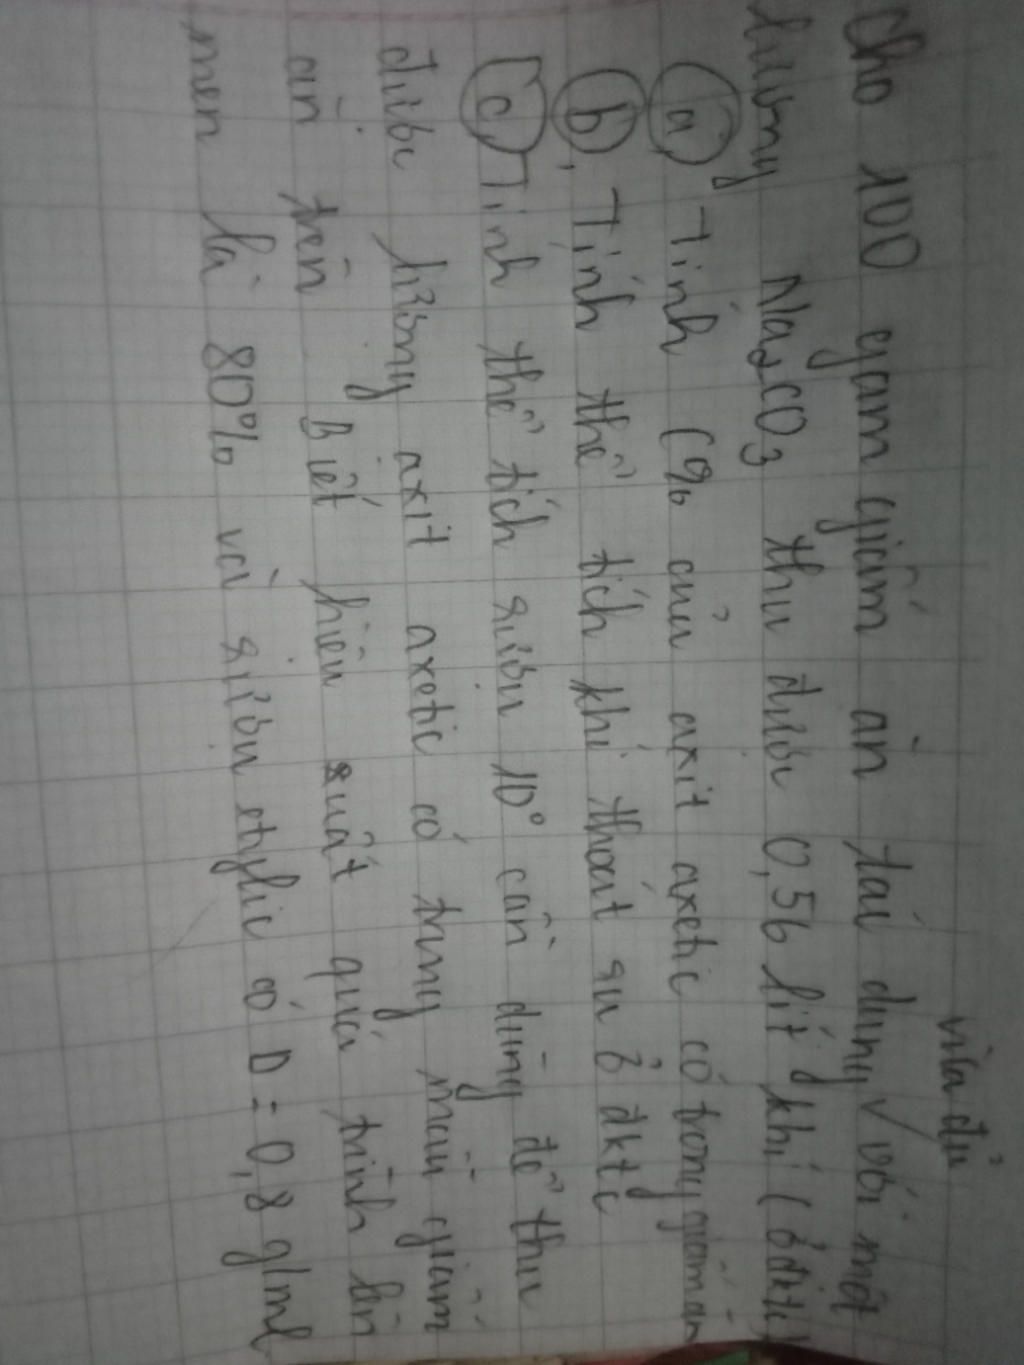 vừa đủ
Cho 100 gam giấm ăn tác dụng với một
lượng Na2CO3 thu được 0,56 lít khí (ở đktc)
a, Tính C% của axit axetic có trong giấm ăn
b, Tính thể tích khí thoát ra ở đktc
c, Tính thể tích rượu 10° cần dùng để thu
được lượng axit axetic có trong mẫu giấm
ăn trên Biết hiệu suất quá trình lên
men là 80% và rượu etylic có D = 0,8 g/ml